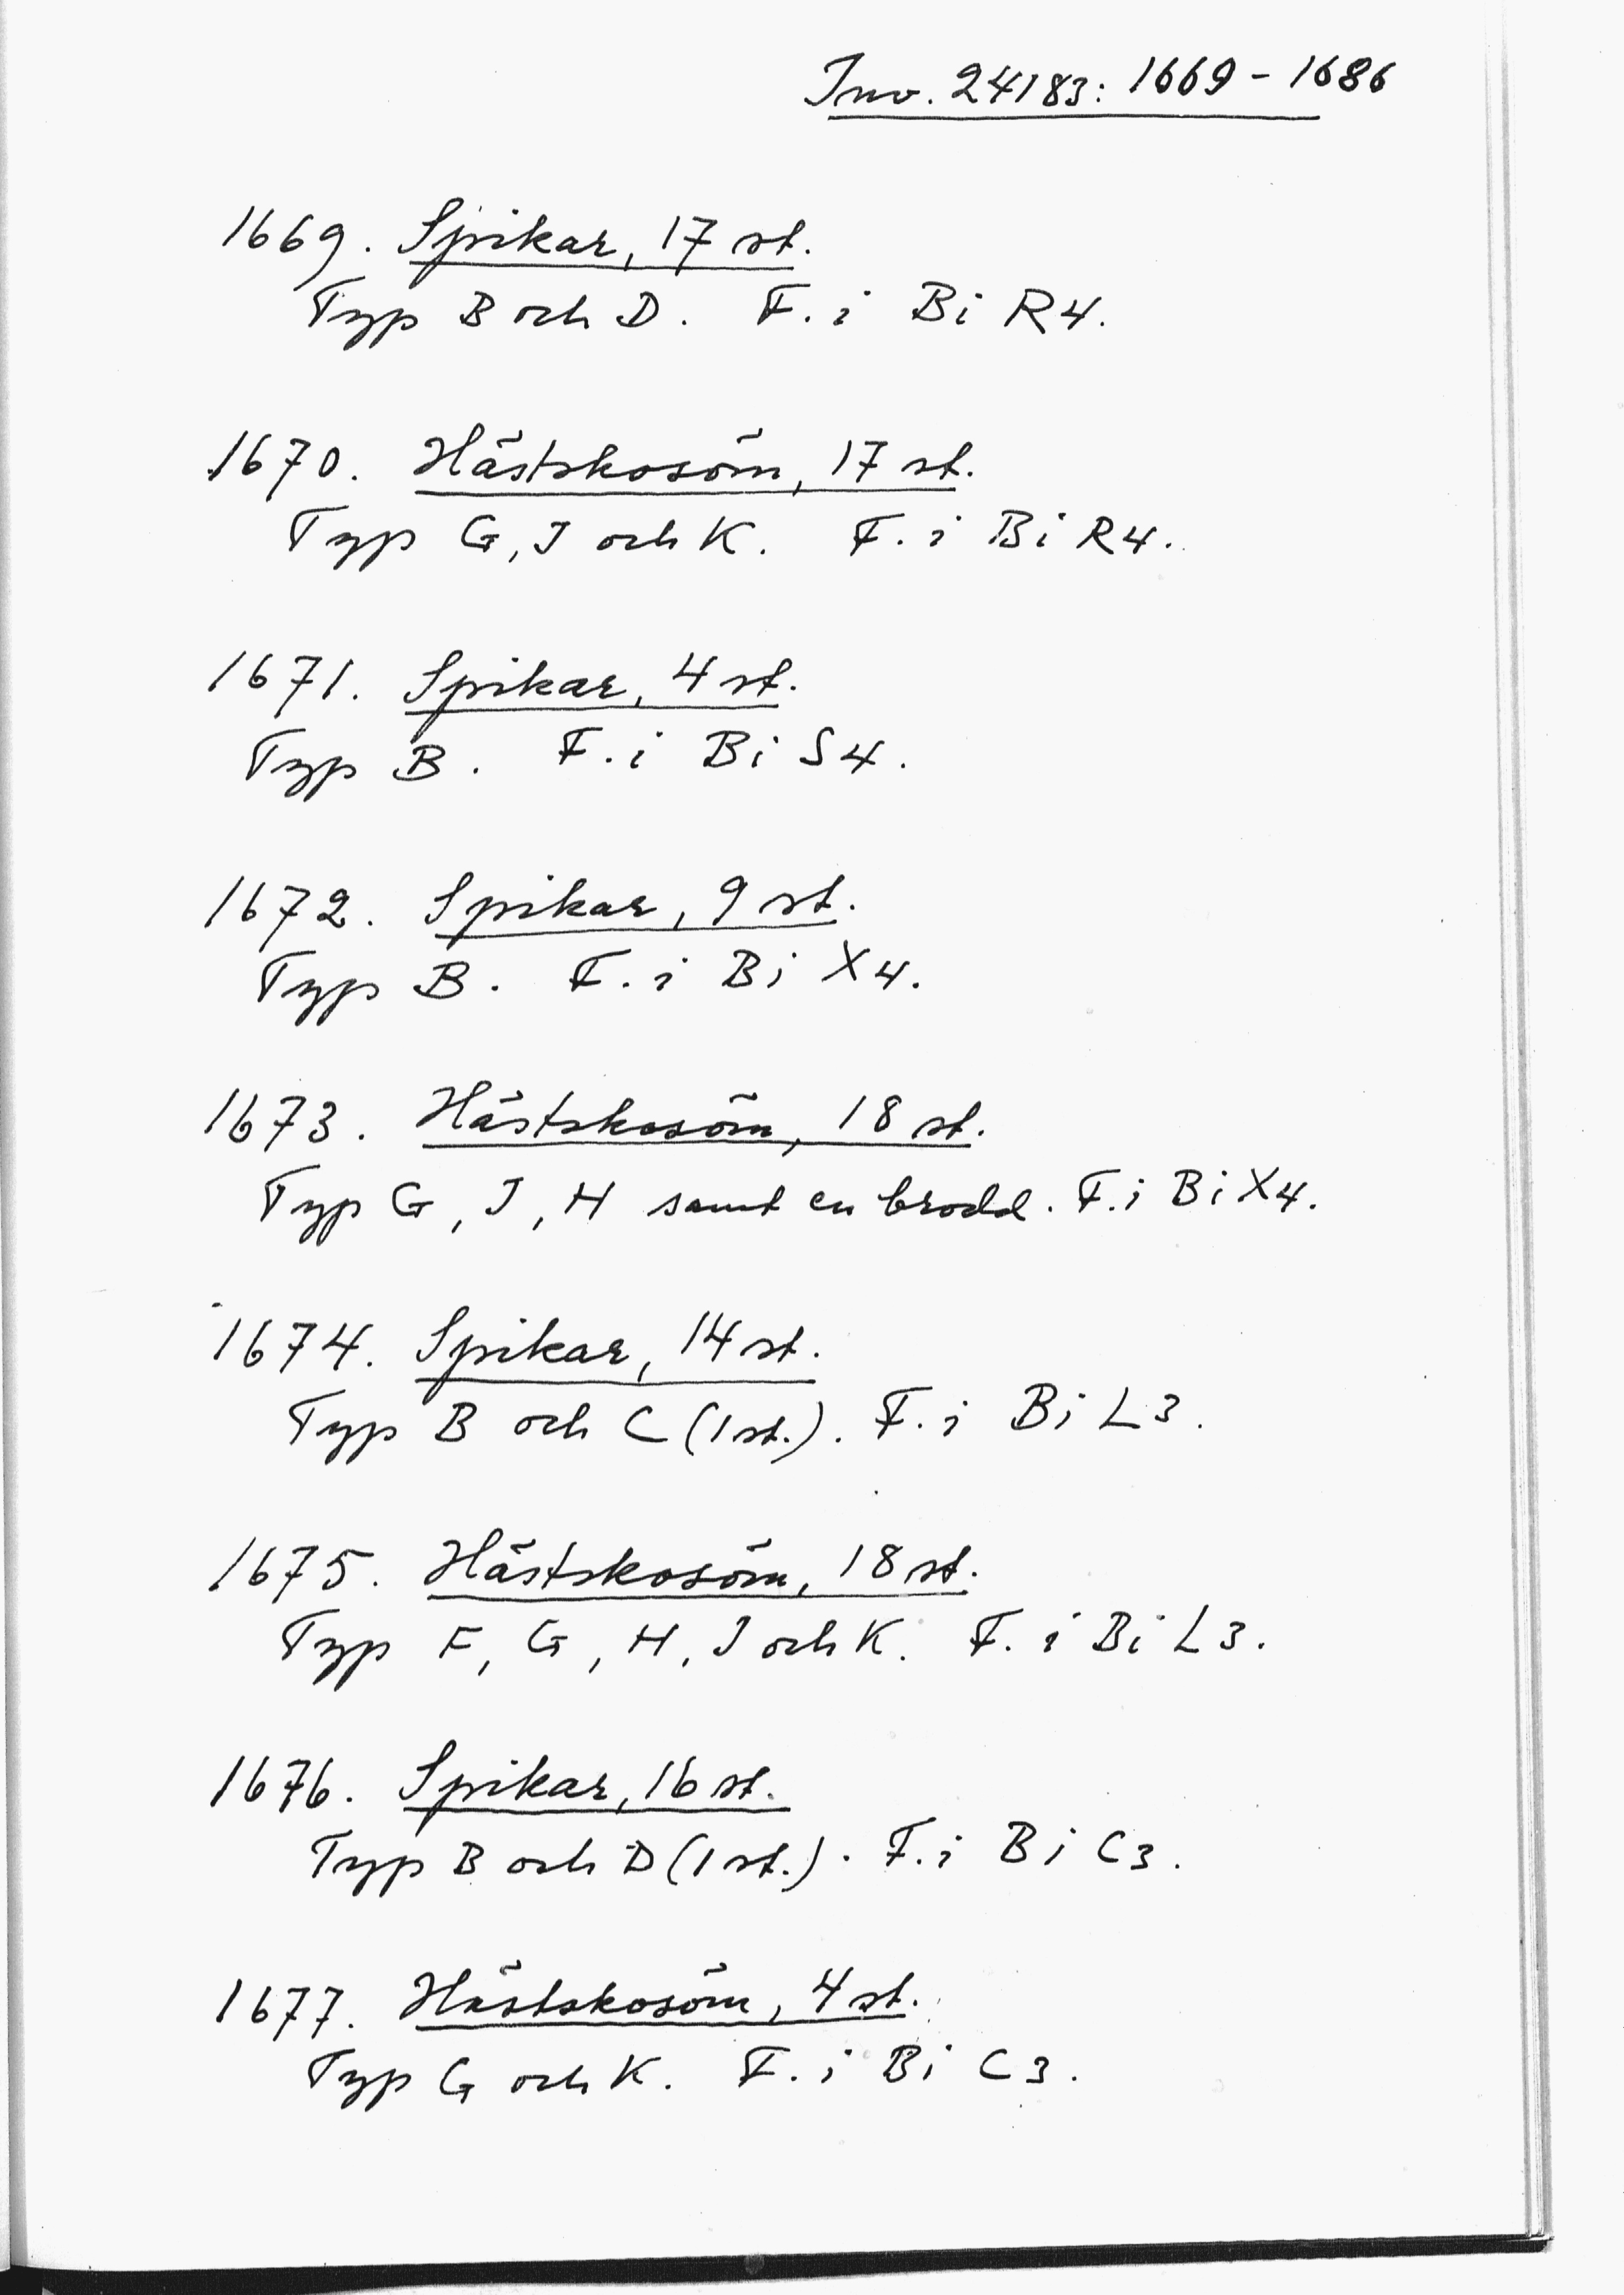 Inv. 24183: 1669 - 1686
1669. Spikar, 17 st.
Typ B och D. F. i Bi R4.
1670. Hästskosöm, 17 st.
Typ G, J och K. F. i Bi R4.
1671. Spikar, 4 st.
Typ B. F. i Bi S4.
1672. Spikar, 9 st.
Typ B. F. i Bi X4.
1673. Hästskosöm, 18 st.
Typ G, J, H samt en brodd. F. i Bi X4.
1674. Spikar, 14 st.
Typ B och C (1 st.). F. i Bi L3.
1675. Hästskosöm, 18 st.
Typ F, G, H, J och K. F. i Bi L3.
1676. Spikar, 16 st.
Typ B och D (1 st.). F. i Bi C3.
1677. Hästskosöm, 4 st.
Typ G och K. F. i Bi C3.